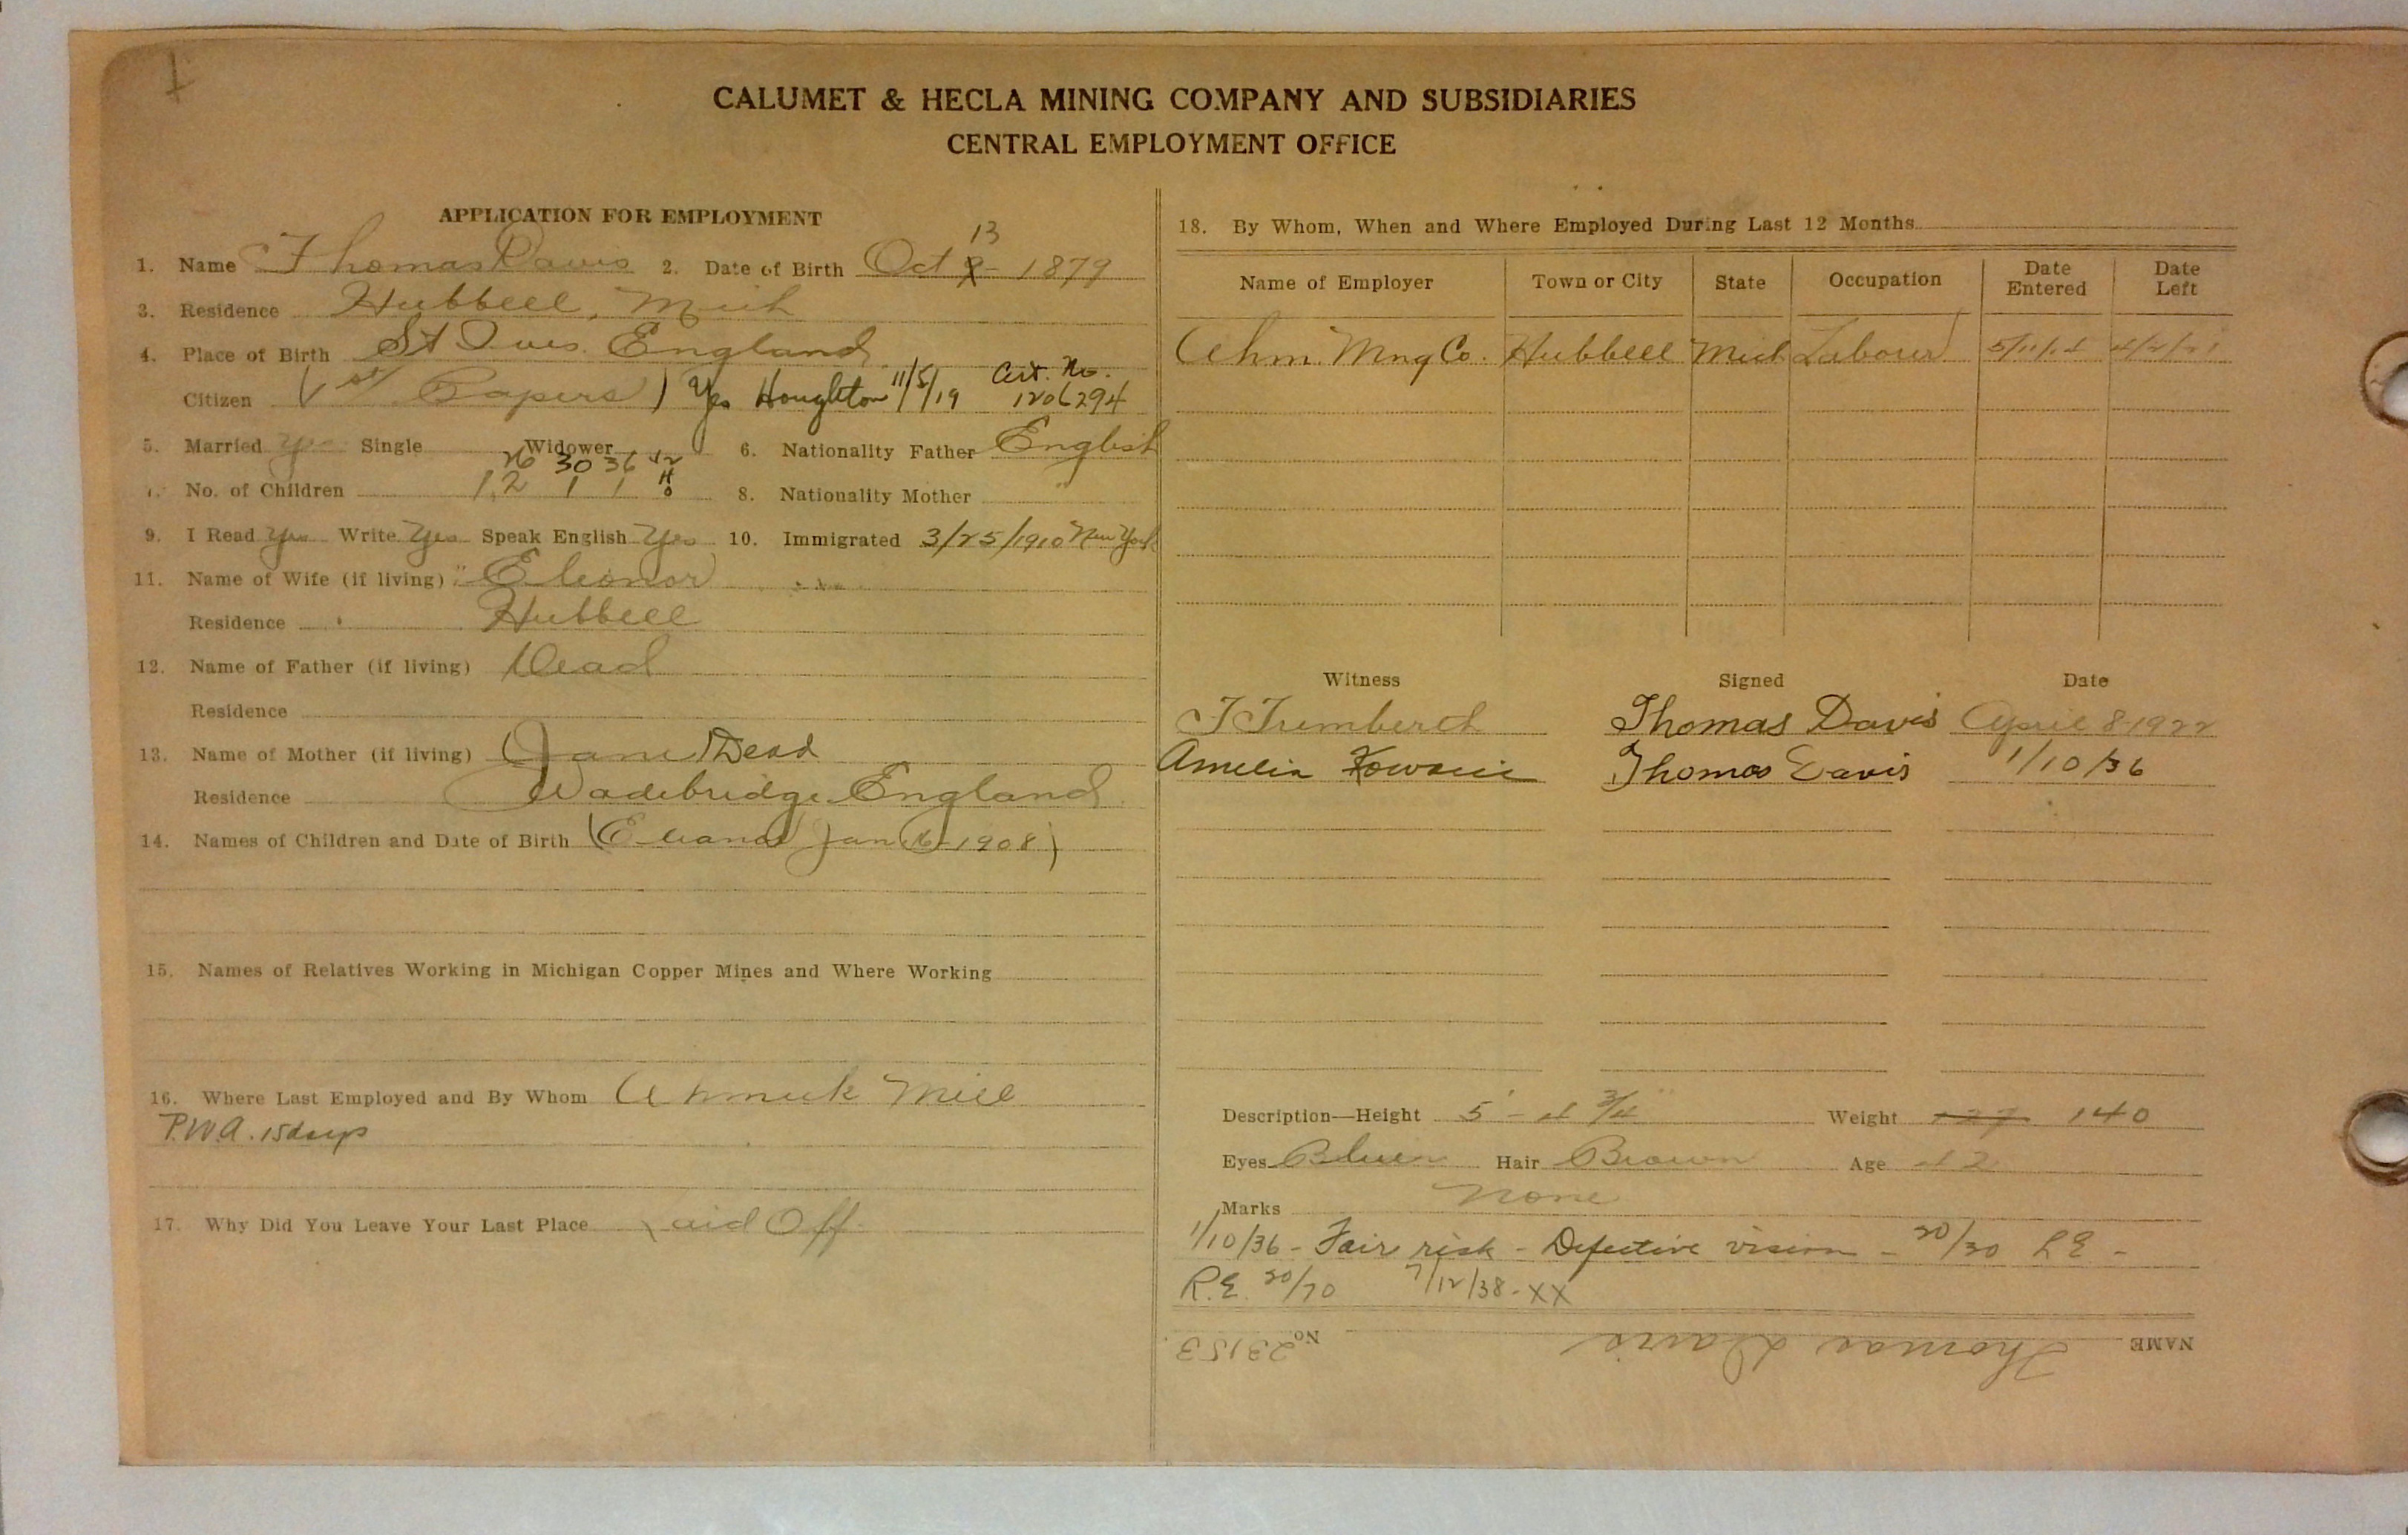 CALUMET & HECLA MINING COMPANY AND SUBSIDIARIES
CENTRAL EMPLOYMENT OFFICE
APPLICATION FOR EMPLOYMENT
13
1. Name Thomas Davis 2. Date of Birth Oct 1879
3. Residence Hubbell, Mich
4. Place of Birth St Ives. England
Citizen (1st Papers) Yes Houghton 11/5/19 Cert. No. 1206294
5. Married Yes Single Widower 6. Nationality Father English
26 30 36 42
7. No. of Children 1, 2 1 1 8. Nationality Mother "
9. I Read Yes Write Yes Speak English Yes 10. Immigrated 3/25/1910 New York
11. Name of Wife (if living) Eleonor
Residence Hubbell
12. Name of Father (if living) Dead
Residence
13. Name of Mother (if living) Jane Dead
Residence Wadebridge England
14. Names of Children and Date of Birth (Eleanor Jan 16-1908)
15. Names of Relatives Working in Michigan Copper Mines and Where Working
16. Where Last Employed and By Whom Ahmeek Mill
P.W.A. 15 days
17. Why Did You Leave Your Last Place Laid Off
18. By Whom, When and Where Employed During Last 12 Months
Name of Employer Town or City State Occupation Date Entered Date Left
Ahm. Mng Co. Hubbell Mich Laborer 5/11/14 4/2/21
Witness Signed Date
T Tremberth Thomas Davis April 8-1922
Amelia Thomas Davis 1/10/36
Description—Height 5' - 4 3/4" Weight 127 140
Eyes Blue Hair Brown Age 42
Marks None
1/10/36 - Fair risk - Defective vision - 20/30 L.E. -
R.E. 20/70 7/12/38 - XX
NAME Thomas Davis No. 23153